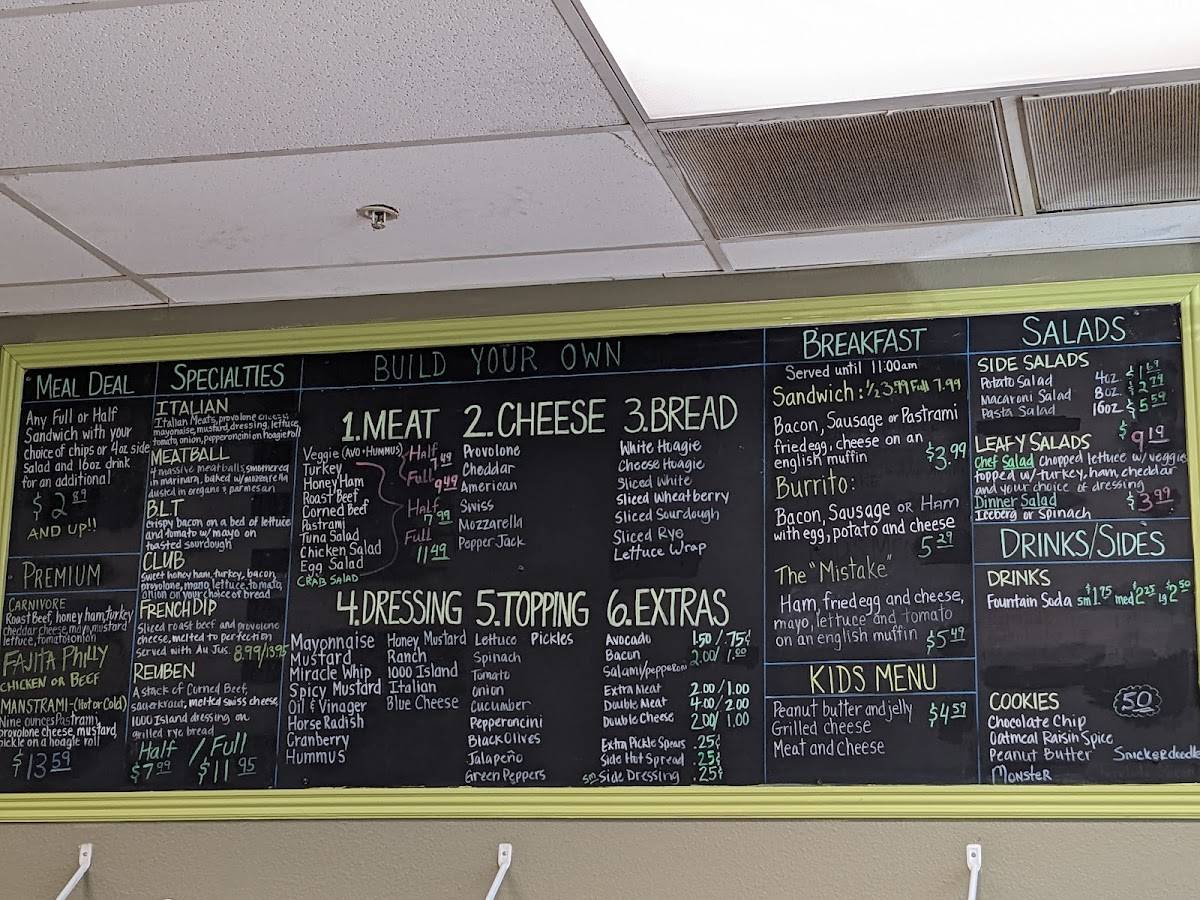 MEAL DEAL
Any Full or Half
Sandwich with your
choice of chips or 4oz side
Salad and 16oz drink
for an additional
$2.89
AND UP!!
PREMIUM
CARNIVORE
Roast Beef, honey ham, turkey
cheddar cheese, mayo, mustard
lettuce, tomato, onion
FAJITA PHILLY
CHICKEN OR BEEF
MANSTRAMI-(Hot or Cold)
Nine ounces Pastrami,
provolone cheese, mustard,
pickle on a hoagie roll
$13.59
SPECIALTIES
ITALIAN
Italian Meats, provolone cheese,
mayonaise, mustard, dressing, lettuce,
tomato, onion, pepperoncini on hoagie roll
MEATBALL
4 massive meatballs, smothered
in marinara, baked w/mozzerella
dusted in oregano & parmesan
B.L.T
crispy bacon on a bed of lettuce
and tomato w/mayo on
toasted sourdough
CLUB
sweet honey ham, turkey, bacon,
provolone, mano, lettuce, tomato,
onion on your choice of bread
FRENCH DIP
Sliced roast beef and provolone
cheese, melted to perfection
served with Au Jus. 8.99/13.95
REUBEN
A stack of Corned Beef,
sauerkraut, melted swiss cheese,
1000 Island dressing on
grilled rye bread
Half / Full
$7.99 / $11.95
BUILD YOUR OWN
1.MEAT
Veggie (AVO+HUMMUS)
Turkey
Honey Ham
Roast Beef
Corned Beef
Pastrami
Tuna Salad
Chicken Salad
Egg Salad
CRAB SALAD
Half
7.49
Full
9.49
Half
7.99
Full
11.49
2.CHEESE
Provolone
Cheddar
American
Swiss
Mozzarella
Pepper Jack
3.BREAD
White Hoagie
Cheese Hoagie
Sliced White
Sliced Wheatberry
Sliced Sourdough
Sliced Rye
Lettuce Wrap
4.DRESSING
Mayonnaise
Mustard
Miracle Whip
Spicy Mustard
Oil & Vinager
Horse Radish
Cranberry
Hummus
Honey Mustard
Ranch
1000 Island
Italian
Blue Cheese
5.TOPPING
Lettuce Pickles
Spinach
Tomato
Onion
Cucumber
Pepperoncini
Black Olives
Jalapeño
Green Peppers
6.EXTRAS
Avocado 1.50/.75¢
Bacon 2.00/1.00
Salami/pepperoni
Extra Meat 2.00/1.00
Double Meat 4.00/2.00
Double Cheese 2.00/1.00
Extra Pickle Spears .25¢
Side Hot Spread .25¢
sm Side Dressing .25¢
BREAKFAST
Served until 11:00am
Sandwich: 1/2 3.99 Full 7.99
Bacon, Sausage or Pastrami
fried egg, cheese on an
english muffin $3.99
Burrito:
Bacon, Sausage or Ham
with egg, potato and cheese
5.29
The "Mistake"
Ham, fried egg and cheese,
mayo, lettuce and tomato
on an english muffin $5.49
KIDS MENU
Peanut butter and jelly $4.59
Grilled cheese
Meat and cheese
SALADS
SIDE SALADS
Potato Salad 4oz.
Macaroni Salad 8oz. $2.79
Pasta Salad 16oz $5.59
$9.19
LEAFY SALADS
Chef Salad chopped lettuce w/veggies
topped w/turkey, ham, cheddar
and your choice of dressing
Dinner Salad $3.99
Iceberg or Spinach
DRINKS/SIDES
DRINKS
Fountain Soda sm 1.75 med 2.25 lg 2.50
COOKIES .50
Chocolate Chip
Oatmeal Raisin Spice
Peanut Butter Snickerdoodle
Monster